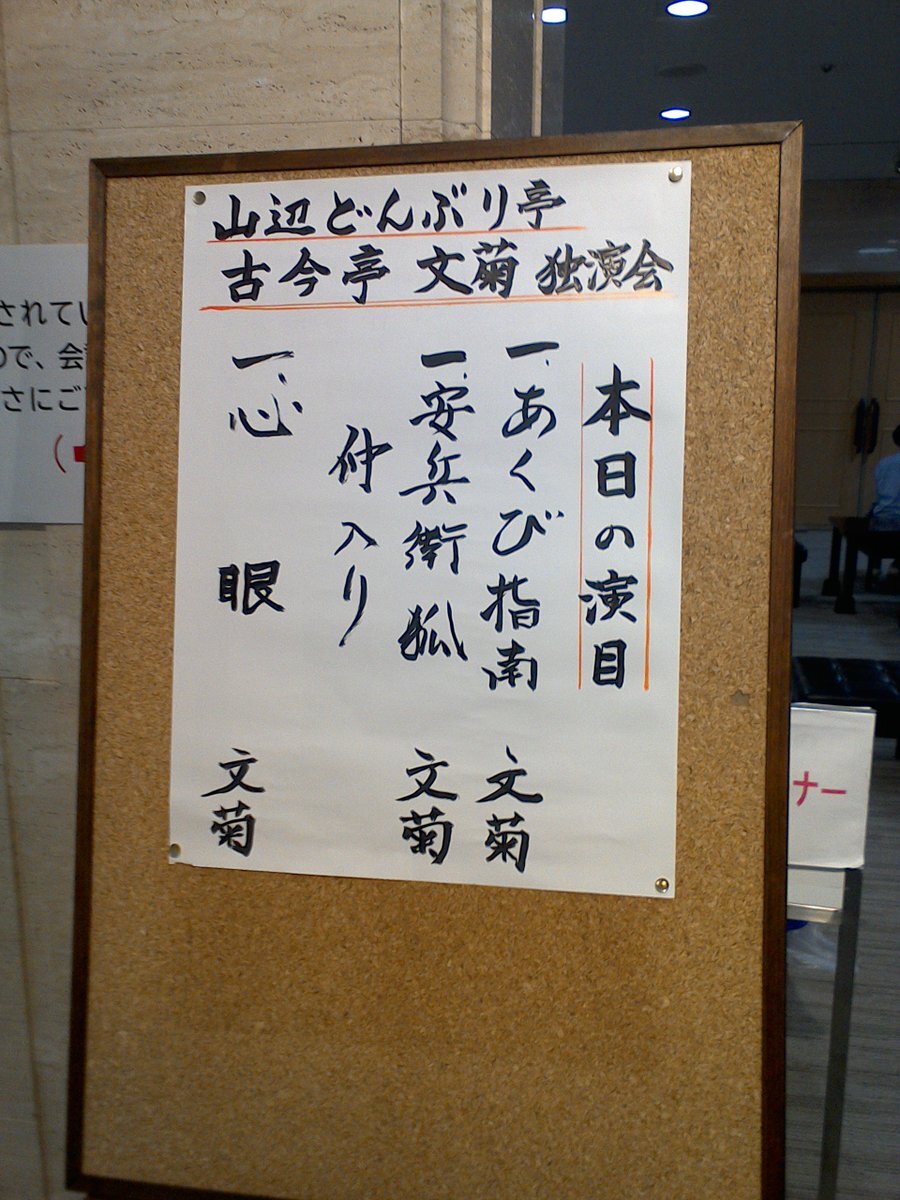 山辺どんぶり亭
古今亭 文菊 独演会
本日の演目
一、あくび指南 文菊
一、安兵衛狐 文菊
仲入り
一、心眼 文菊
されてい
ので、会
さにご
ナー